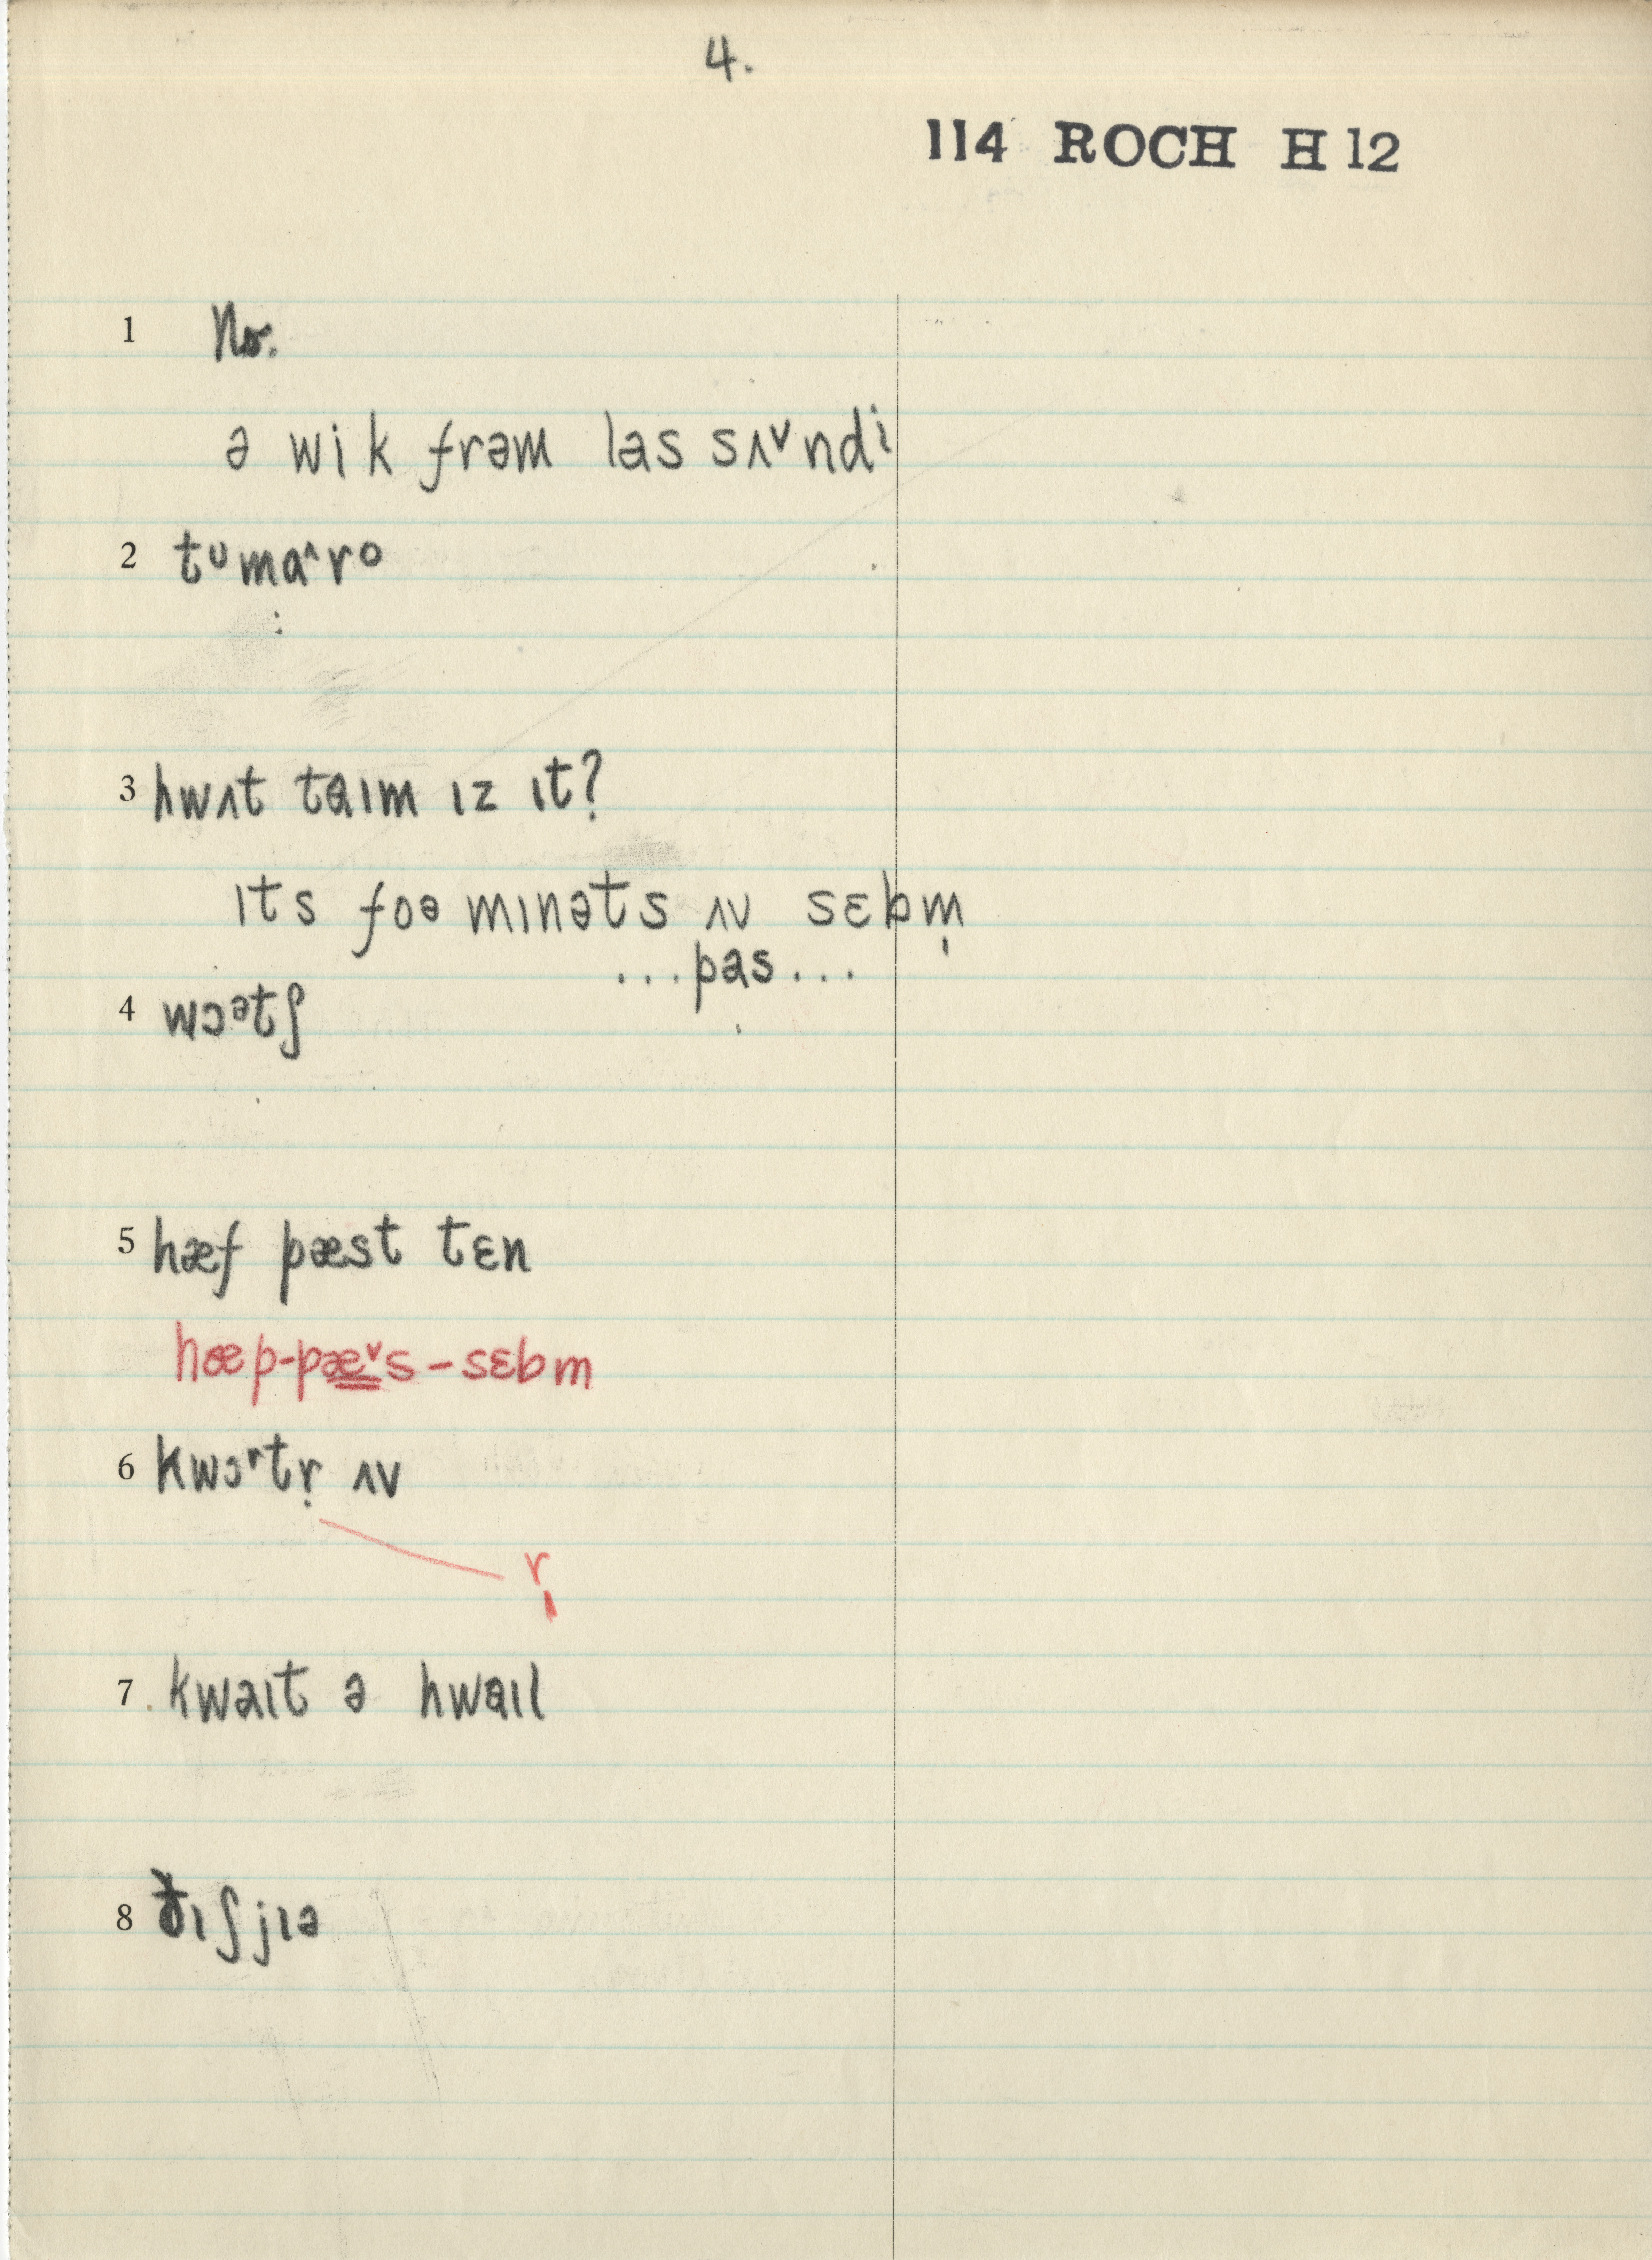 4.
114 ROCH H 12
1 No.
ə wik frəm las sʌᵛndⁱ
2 tᵁmaˆrᵒ
3 hwʌt taɪm ɪz ɪt?
ɪts foə mɪnəts ʌv sɛbm̩
...pas...
4 wɔᵊtʃ
5 hæf pæst tɛn
hæp-pæᵛs-sɛbm
6 kwɔʳtr̩ ʌv
r̩
7 kwaɪt ə hwaɪl
8 ðɪʃjɪə